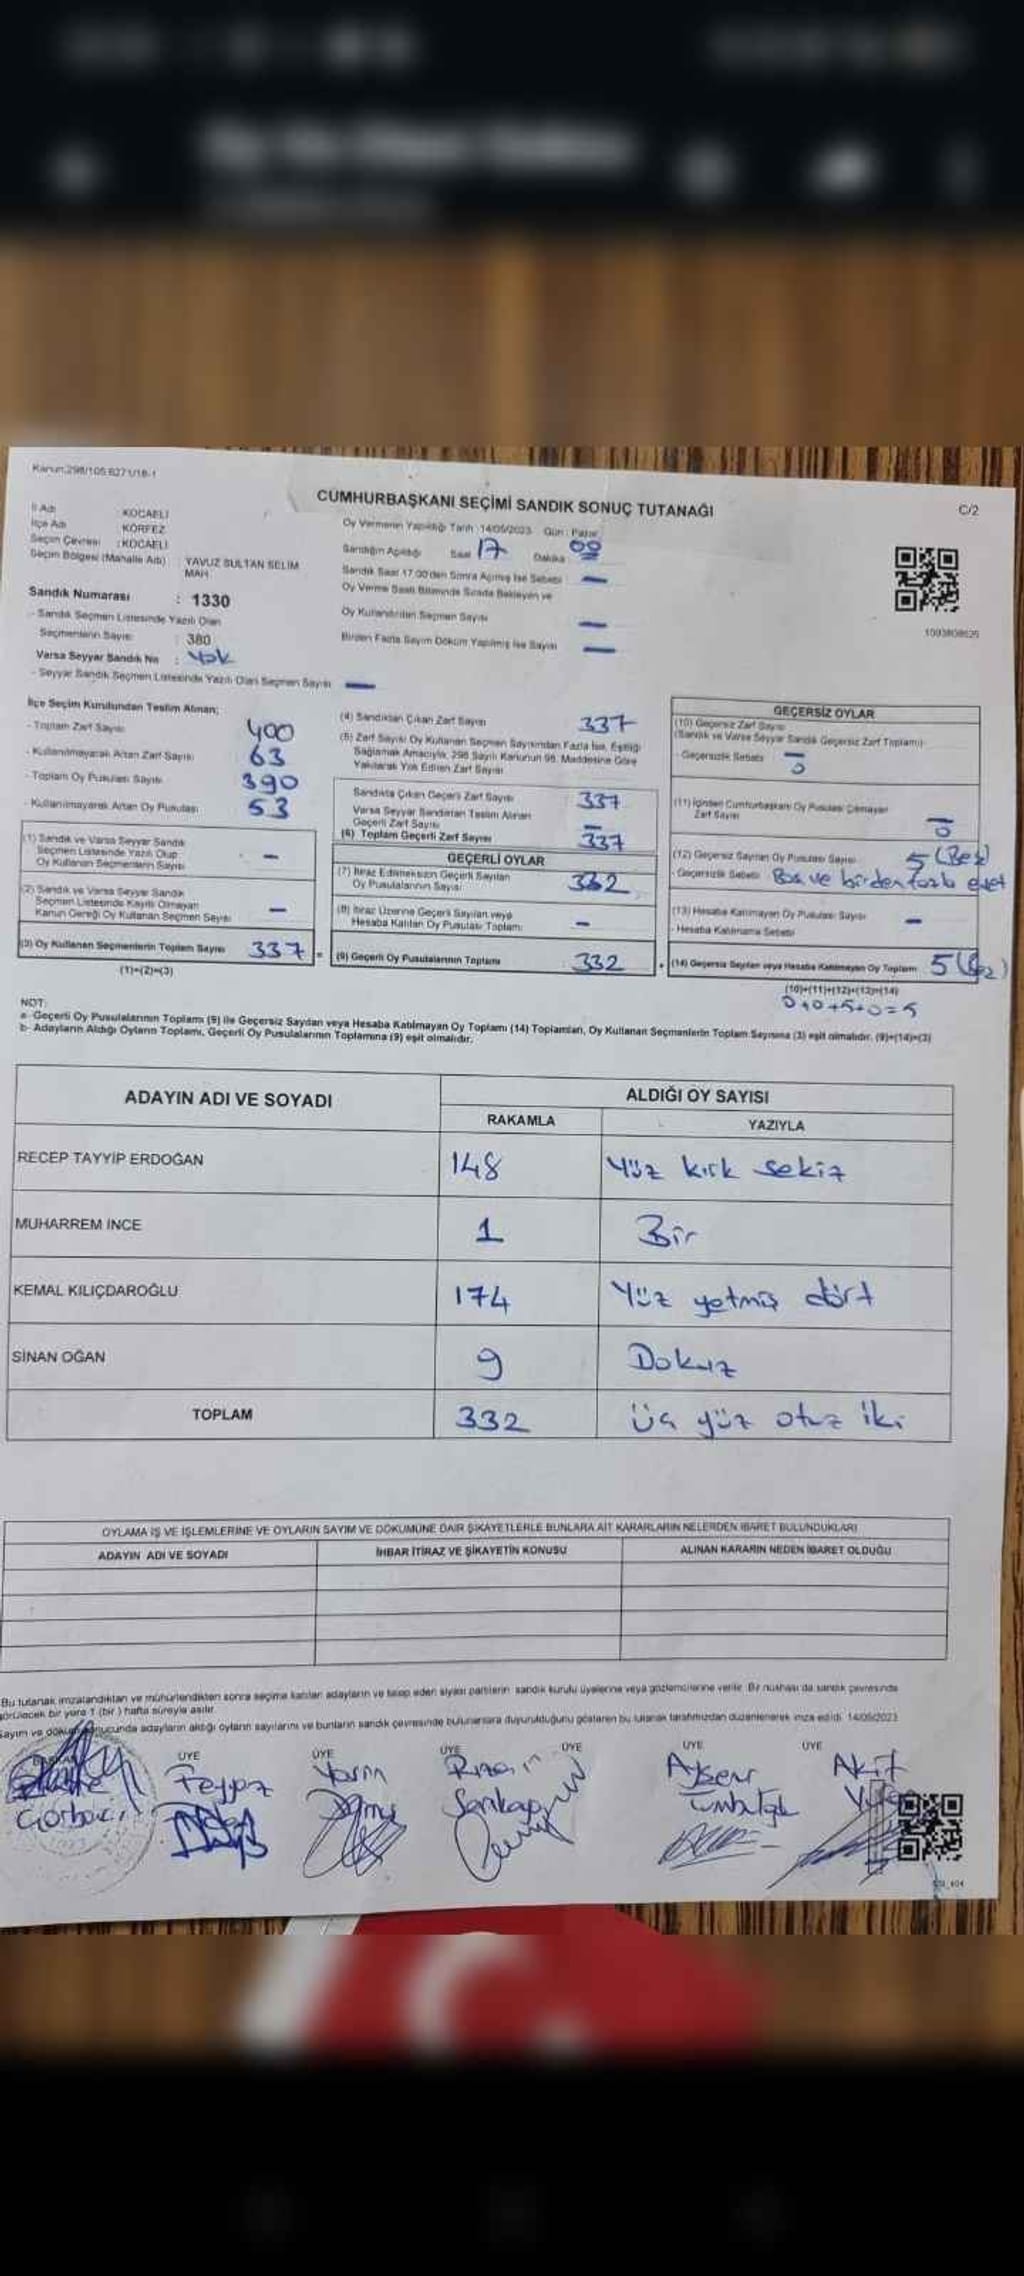 Kanun:298/105.6271/18-1
CUMHURBAŞKANI SEÇİMİ SANDIK SONUÇ TUTANAĞI
C/2
İl Adı : KOCAELİ
İlçe Adı : KÖRFEZ
Seçim Çevresi : KOCAELİ
Seçim Bölgesi (Mahalle Adı) : YAVUZ SULTAN SELİM MAH.
Sandık Numarası : 1330
- Sandık Seçmen Listesinde Yazılı Olan
Seçmenlerin Sayısı : 380
Varsa Seyyar Sandık No : Yok
- Seyyar Sandık Seçmen Listesinde Yazılı Olan Seçmen Sayısı —
Oy Vermenin Yapıldığı Tarih : 14/05/2023 Gün : Pazar
Sandığın Açıldığı Saat 17 Dakika 00
Sandık Saat 17:00'den Sonra Açılmış İse Sebebi —
Oy Verme Saati Bitiminde Sırada Bekleyen ve
Oy Kullandırılan Seçmen Sayısı —
Birden Fazla Sayım Döküm Yapılmış İse Sayısı —
1093808626
İlçe Seçim Kurulundan Teslim Alınan;
- Toplam Zarf Sayısı 400
- Kullanılmayarak Artan Zarf Sayısı 63
- Toplam Oy Pusulası Sayısı 390
- Kullanılmayarak Artan Oy Pusulası 53
(1) Sandık ve Varsa Seyyar Sandık
Seçmen Listesinde Yazılı Olup
Oy Kullanan Seçmenlerin Sayısı —
(2) Sandık ve Varsa Seyyar Sandık
Seçmen Listesinde Kayıtlı Olmayan
Kanun Gereği Oy Kullanan Seçmen Sayısı —
(3) Oy Kullanan Seçmenlerin Toplam Sayısı 337 =
(1)+(2)=(3)
(4) Sandıktan Çıkan Zarf Sayısı 337
(5) Zarf Sayısı Oy Kullanan Seçmen Sayısından Fazla İse, Eşitliği
Sağlamak Amacıyla, 298 Sayılı Kanunun 98. Maddesine Göre
Yakılarak Yok Edilen Zarf Sayısı
Sandıkta Çıkan Geçerli Zarf Sayısı 337
Varsa Seyyar Sandıktan Teslim Alınan
Geçerli Zarf Sayısı —
(6) Toplam Geçerli Zarf Sayısı 337
GEÇERLİ OYLAR
(7) İtiraz Edilmeksizin Geçerli Sayılan
Oy Pusulalarının Sayısı 332
(8) İtiraz Üzerine Geçerli Sayılan veya
Hesaba Katılan Oy Pusulası Toplamı —
(9) Geçerli Oy Pusulalarının Toplamı 332 +
GEÇERSİZ OYLAR
(10) Geçersiz Zarf Sayısı
(Sandık ve Varsa Seyyar Sandık Geçersiz Zarf Toplamı)
- Geçersizlik Sebebi
(11) İçinden Cumhurbaşkanı Oy Pusulası Çıkmayan
Zarf Sayısı 0
(12) Geçersiz Sayılan Oy Pusulası Sayısı 5 (Beş)
- Geçersizlik Sebebi Boş ve birden fazla evet
(13) Hesaba Katılmayan Oy Pusulası Sayısı —
- Hesaba Katılmama Sebebi
(14) Geçersiz Sayılan veya Hesaba Katılmayan Oy Toplamı 5
(10)+(11)+(12)+(13)=(14)
0+0+5+0=5
NOT:
a- Geçerli Oy Pusulalarının Toplamı (9) ile Geçersiz Sayılan veya Hesaba Katılmayan Oy Toplamı (14) Toplamları, Oy Kullanan Seçmenlerin Toplam Sayısına (3) eşit olmalıdır. (9)+(14)=(3)
b- Adayların Aldığı Oyların Toplamı, Geçerli Oy Pusulalarının Toplamına (9) eşit olmalıdır.
ADAYIN ADI VE SOYADI
ALDIĞI OY SAYISI
RAKAMLA YAZIYLA
RECEP TAYYİP ERDOĞAN 148 Yüz kırk sekiz
MUHARREM İNCE 1 Bir
KEMAL KILIÇDAROĞLU 174 Yüz yetmiş dört
SİNAN OĞAN 9 Dokuz
TOPLAM 332 üç yüz otuz iki
OYLAMA İŞ VE İŞLEMLERİNE VE OYLARIN SAYIM VE DÖKÜMÜNE DAİR ŞİKAYETLERLE BUNLARA AİT KARARLARIN NELERDEN İBARET BULUNDUKLARI
ADAYIN ADI VE SOYADI İHBAR İTİRAZ VE ŞİKAYETİN KONUSU ALINAN KARARIN NEDEN İBARET OLDUĞU
Bu tutanak imzalandıktan ve mühürlendikten sonra seçime katılan adayların ve talep eden siyasi partilerin sandık kurulu üyelerine veya gözlemcilerine verilir. Bir nüshası da sandık çevresinde
görülecek bir yere 1 (bir) hafta süreyle asılır.
Sayım ve döküm sonucunda adayların aldığı oyların sayılarını ve bunların sandık çevresinde bulunanlara duyurulduğunu gösteren bu tutanak tarafımızdan düzenlenerek imza edildi. 14/05/2023
ÜYE ÜYE ÜYE ÜYE ÜYE ÜYE
Feyyaz
Ayşen
Akif